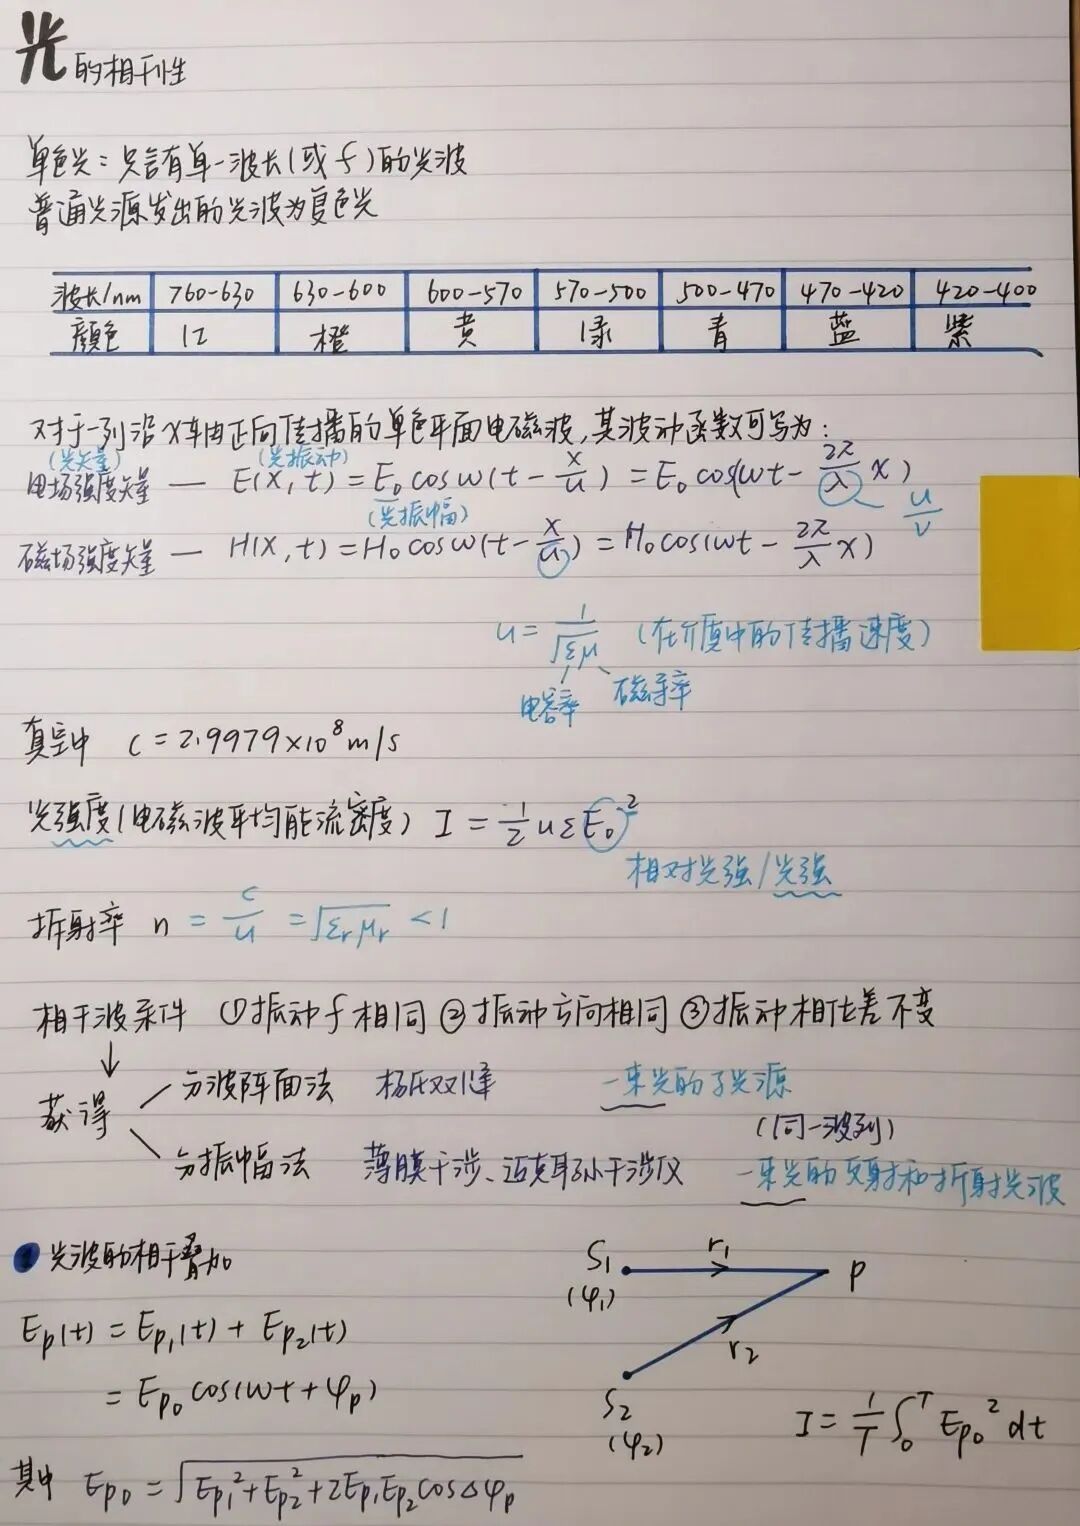 光的相干性
单色光：只含有单一波长(或f)的光波
普通光源发出的光波为复色光
波长/nm 760-630 630-600 600-570 570-500 500-470 470-420 420-400
颜色 红 橙 黄 绿 青 蓝 紫
对于一列沿x轴由正向传播的单色平面电磁波，其波动函数可写为：
(光矢量) (光振动)
电场强度矢量 — E(x,t) = E₀ cos ω(t - x/u) = E₀ cos(ωt - 2π/λ x)
(光振幅) u/ν
磁场强度矢量 — H(x,t) = H₀ cos ω(t - x/u) = H₀ cos(ωt - 2π/λ x)
u = 1/√εμ (在介质中的传播速度)
电容率 磁导率
真空中 c = 2.9979×10⁸ m/s
光强度(电磁波平均能流密度) I = 1/2 uεE₀²
相对光强/光强
折射率 n = c/u = √εᵣμᵣ < 1
相干波条件 ①振动f相同 ②振动方向相同 ③振动相位差不变
↓
获得
分波阵面法 杨氏双缝 一束光的子光源
(同一波列)
分振幅法 薄膜干涉、迈克耳孙干涉仪 一束光的反射和折射光波
1 光波的相干叠加
S₁ r₁ P
(φ₁)
Ep(t) = Ep₁(t) + Ep₂(t)
r₂
= Ep₀ cos(ωt + φp)
S₂
(φ₂)
I = 1/T ∫₀ᵀ Ep₀² dt
其中 Ep₀ = √Ep₁² + Ep₂² + 2Ep₁Ep₂cosΔφp